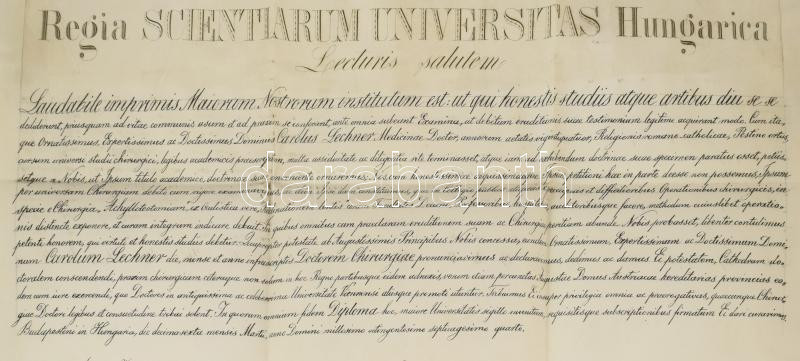 Regia SCIENTIARUM UNIVERSITAS Hungarica
Lecturis salutem
Laudabile imprimis Maiorum Nostrorum institutum est: ut qui honestis studiis atque artibus diu se se
dediderunt, priusquam ad vitae communis usum et ad praxim se conferant, ante omnia subeant Examina, ut debitum eruditionis suae testimonium legitime acquirant modo. Cum ita-
que Ornatissimus, Expertissimus ac Doctissimus Dominus Carolus Lechner, Medicinae Doctor, annorum aetatis viginti quatuor, Religionis romano catholicae, Pestino ortus,
cursum universi studii chirurgici, legibus academicis praescriptum, multa assiduitate ac diligentia rite terminasset, atque iam ad exhibendum doctrinae suae specimen paratus esset, petiis-
setque a Nobis, ut Ipsum titulo academico, doctrinae suae
per universam Chirurgiam debito cum rigore examinatus
specie e Chirurgia, Achyllotomiam, ex Oculistica vero,
nis distincte exponere, et curam integram indicare debuit. In quibus omnibus cum praeclaram eruditionem suam ac Chirurgiae peritiam abunde Nobis probasset, libenter contulimus
petente honorem, qui virtuti et honestis studiis debetur. Quapropter potestate ab Augustissimis Principibus Nobis concessa, eundem Ornatissimum, Expertissimum ac Doctissimum Domi-
num Carolum Lechner die, mense et anno infrascriptis Doctorem Chirurgiae pronunciavimus ac declaravimus, dedimus ac damus Ei potestatem, Cathedram do-
ctoralem conscendendi, praxim chirurgicam ceteraque non solum in hoc Regno partibusque eidem adnexis, verum etiam per cunctas Augustae Domus Austriacae hereditarias provincias eo-
dem cum iure exercendi, quo Doctores in antiquissima ac celeberrima Universitate Viennensi aliisque promoti utuntur. Tribuimus Ei insuper privilegia omnia ac praerogativas, quaecunque Chirur-
giae Doctori legibus et consuetudine tribui solent. In quorum omnium fidem Diploma hoc, maiore Universitatis sigillo munitum, requisitisque subscriptionibus firmatum Ei dari curavimus.
Budapestini in Hungaria, die decimasexta mensis Martii, anno Domini millesimo octingentesimo septuagesimo quarto.
darabanth